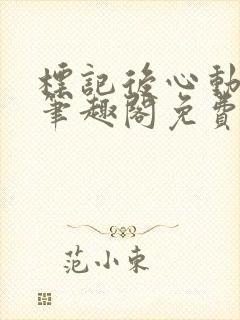 標記後心動
筆趣閣免費
范小東